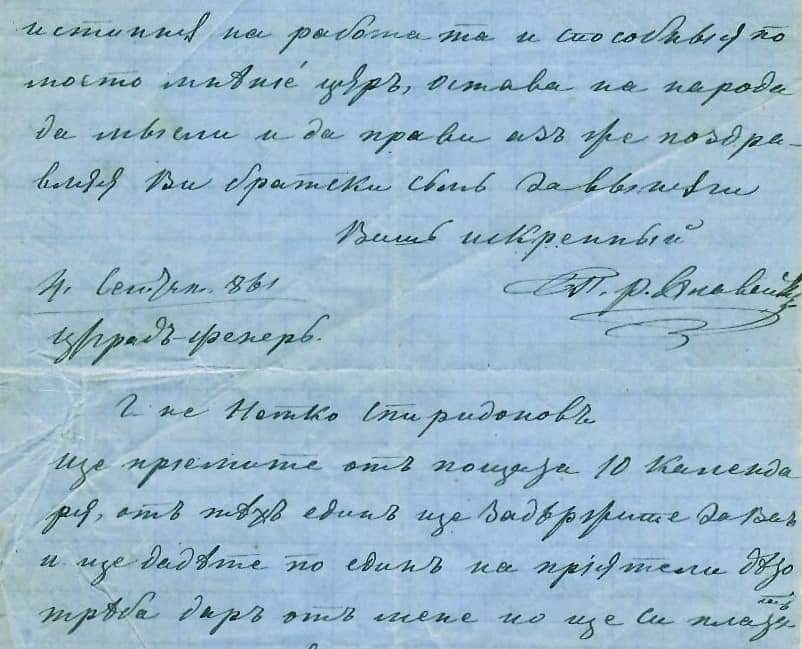 истинния на работата и способныя по
моето мнѣніе цѣръ, остава на народа
да мысли и да прави азъ же поздра-
вляя Ви братски съмь завынаги
Вашь искренный
4. Септемв. 861
Цариградъ-Фенеръ.
Г не Нетко Спиридоновъ
ще пріемите отъ поща за 10 Календа
ря, отъ тѣхъ единъ ще задържите за Васъ
и ще дадѣте по единъ на пріятели дѣто
трѣба даръ отъ мене но ще си плаза